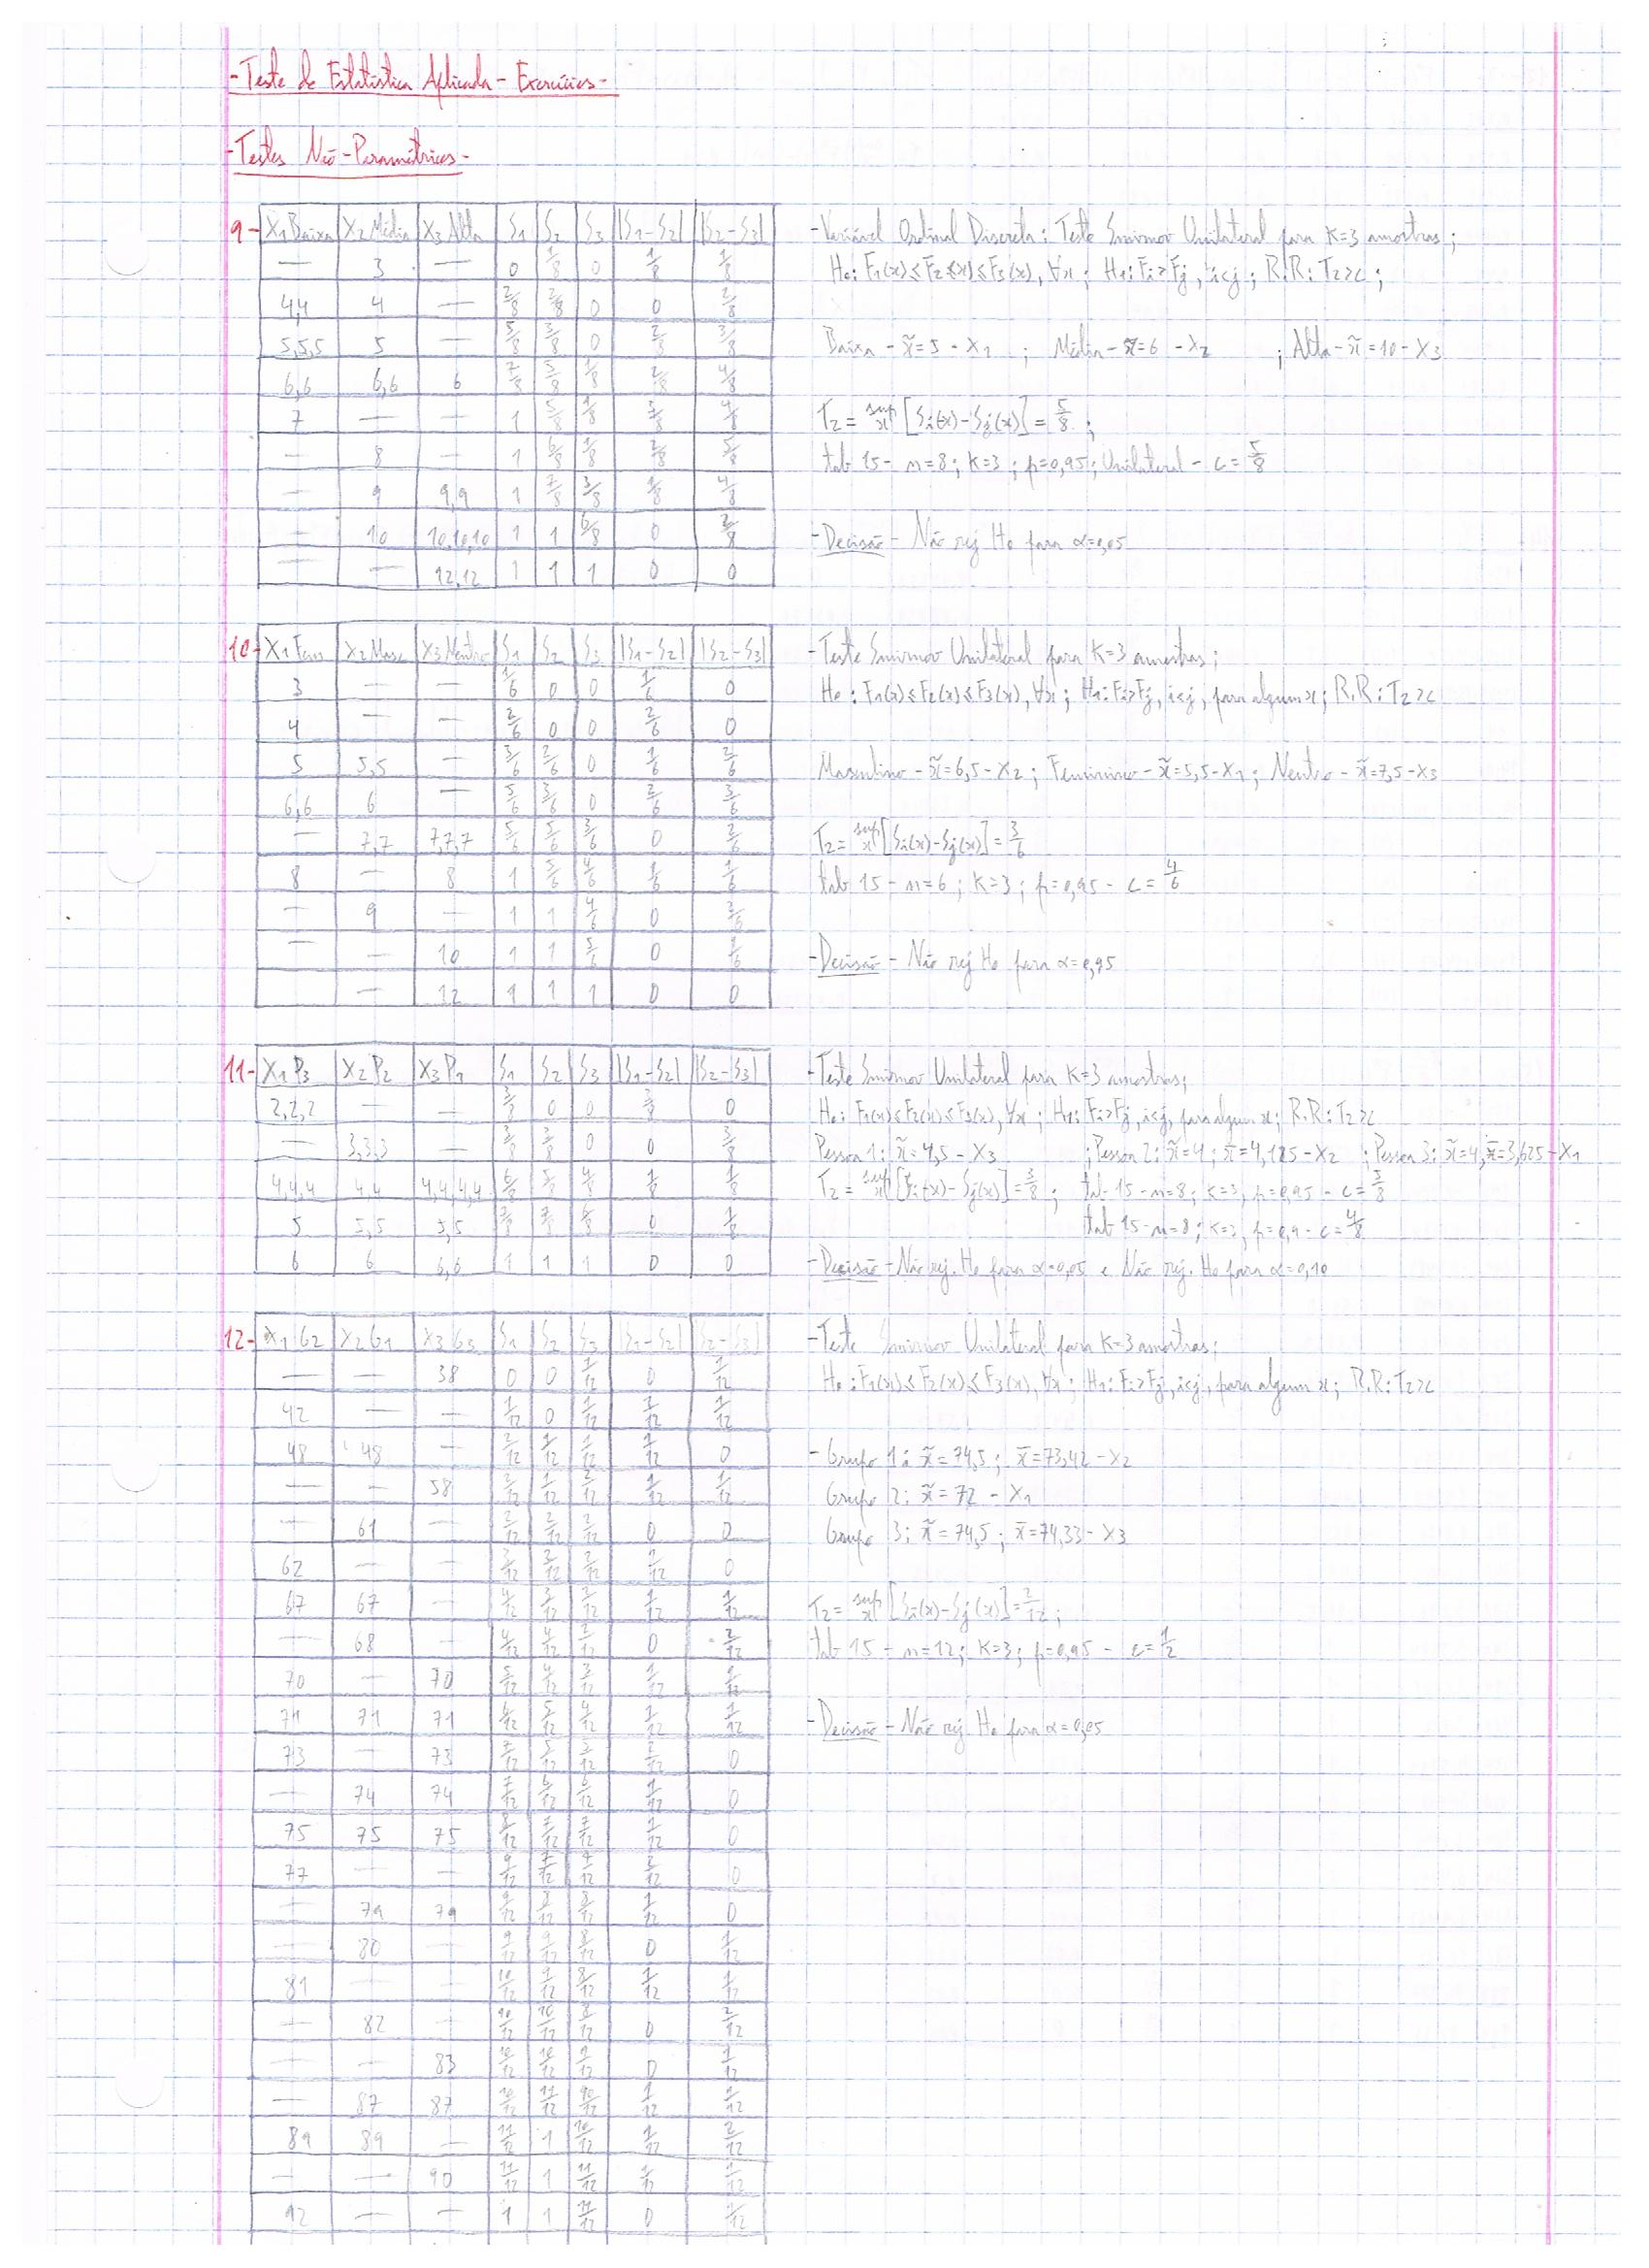 -Teste de Estatística Aplicada - Exercícios-
-Testes Não-Paramétricos-
9- X1 Baixa X2 Média X3 Alta S1 S2 S3 |S1-S2| |S2-S3|
— 3 — 0 1/8 0 1/8 1/8
4,4 4 — 2/8 2/8 0 0 2/8
5,5,5 5 — 5/8 3/8 0 2/8 3/8
6,6 6,6 6 7/8 5/8 1/8 2/8 4/8
7 — — 1 5/8 1/8 3/8 4/8
— 8 — 1 6/8 1/8 2/8 5/8
— 9 9,9 1 7/8 3/8 1/8 4/8
— 10 10,10,10 1 1 6/8 0 2/8
— — 12,12 1 1 1 0 0
-Variável Ordinal Discreta: Teste Smirnov Unilateral para K=3 amostras;
H0: F1(x)≤F2(x)≤F3(x), ∀x; H1: Fi>Fj, i<j; R.R: T2>c;
Baixa - x̃=5 - X1 ; Média - x̃=6 - X2 ; Alta - x̃=10 - X3
T2 = sup x [Si(x)-Sj(x)] = 5/8 ;
tab 15 - n=8; K=3; p=0,95; Unilateral - c=5/8
-Decisão - Não rej H0 para α=0,05
10- X1 Fem X2 Masc X3 Neutro S1 S2 S3 |S1-S2| |S2-S3|
3 — — 1/6 0 0 1/6 0
4 — — 2/6 0 0 2/6 0
5 5,5 — 3/6 2/6 0 1/6 2/6
6,6 6 — 5/6 3/6 0 2/6 3/6
— 7,7 7,7,7 5/6 5/6 3/6 0 2/6
8 — 8 1 5/6 4/6 1/6 1/6
— 9 — 1 1 4/6 0 2/6
— — 10 1 1 5/6 0 1/6
— 12 1 1 1 0 0
-Teste Smirnov Unilateral para K=3 amostras;
H0: F1(x)≤F2(x)≤F3(x), ∀x; H1: Fi>Fj, i<j, para algum x; R.R: T2>c
Masculino - x̃=6,5 - X2; Feminino - x̃=5,5 - X1; Neutro - x̃=7,5 - X3
T2= sup x [Si(x)-Sj(x)] = 3/6
tab 15 - n=6; K=3; p=0,95 - c=4/6
-Decisão - Não rej H0 para α=0,95
11- X1 P3 X2 P2 X3 P1 S1 S2 S3 |S1-S2| |S2-S3|
2,2,2 — — 3/8 0 0 3/8 0
— 3,3,3 — 3/8 3/8 0 0 3/8
4,4,4 4,4 4,4,4,4 6/8 5/8 4/8 1/8 1/8
5 5,5 5,5 7/8 7/8 6/8 0 1/8
6 6 6,6 1 1 1 0 0
-Teste Smirnov Unilateral para K=3 amostras;
H0: F1(x)≤F2(x)≤F3(x), ∀x; H1: Fi>Fj, i<j, para algum x; R.R: T2>c
Pessoa 1: x̃=4,5 - X3 ; Pessoa 2: x̃=4; x̄=4,125 - X2 ; Pessoa 3: x̃=4, x̄=3,625 - X1
T2 = sup x [Si(x)-Sj(x)] = 3/8 ; tab 15 - n=8; K=3, p=0,95 - c=5/8
tab 15 - n=8; K=3, p=0,9 - c=4/8
-Decisão - Não rej. H0 para α=0,05 e Não rej. H0 para α=0,10
12- X1 G2 X2 G1 X3 G3 S1 S2 S3 |S1-S2| |S2-S3|
— — 38 0 0 1/12 0 1/12
42 — — 1/12 0 1/12 1/12 1/12
48 48 — 2/12 1/12 1/12 1/12 0
— — 58 2/12 1/12 2/12 1/12 1/12
— 61 — 2/12 2/12 2/12 0 0
62 — — 3/12 2/12 2/12 1/12 0
67 67 — 4/12 3/12 2/12 1/12 1/12
— 68 — 4/12 4/12 2/12 0 2/12
70 — 70 5/12 4/12 3/12 1/12 1/12
71 71 71 6/12 5/12 4/12 1/12 1/12
73 — 73 7/12 5/12 5/12 2/12 0
— 74 74 7/12 6/12 6/12 1/12 0
75 75 75 8/12 7/12 7/12 1/12 0
77 — — 9/12 7/12 7/12 2/12 0
— 79 79 9/12 8/12 8/12 1/12 0
— 80 — 9/12 9/12 8/12 0 1/12
81 — — 10/12 9/12 8/12 1/12 1/12
— 82 — 10/12 10/12 8/12 0 2/12
— — 83 10/12 10/12 9/12 0 1/12
— 87 87 10/12 11/12 10/12 1/12 1/12
89 89 — 11/12 1 10/12 1/12 2/12
— — 90 11/12 1 11/12 1/12 1/12
92 — — 1 1 11/12 0 1/12
-Teste Smirnov Unilateral para K=3 amostras;
H0: F1(x)≤F2(x)≤F3(x), ∀x; H1: Fi>Fj, i<j, para algum x; R.R: T2>c
- Grupo 1: x̃=74,5; x̄=73,42 - X2
Grupo 2: x̃=72 - X1
Grupo 3: x̃=74,5; x̄=74,33 - X3
T2= sup x [Si(x)-Sj(x)] = 2/12;
tab 15 - n=12; K=3; p=0,95 - c=1/2
-Decisão - Não rej H0 para α=0,05